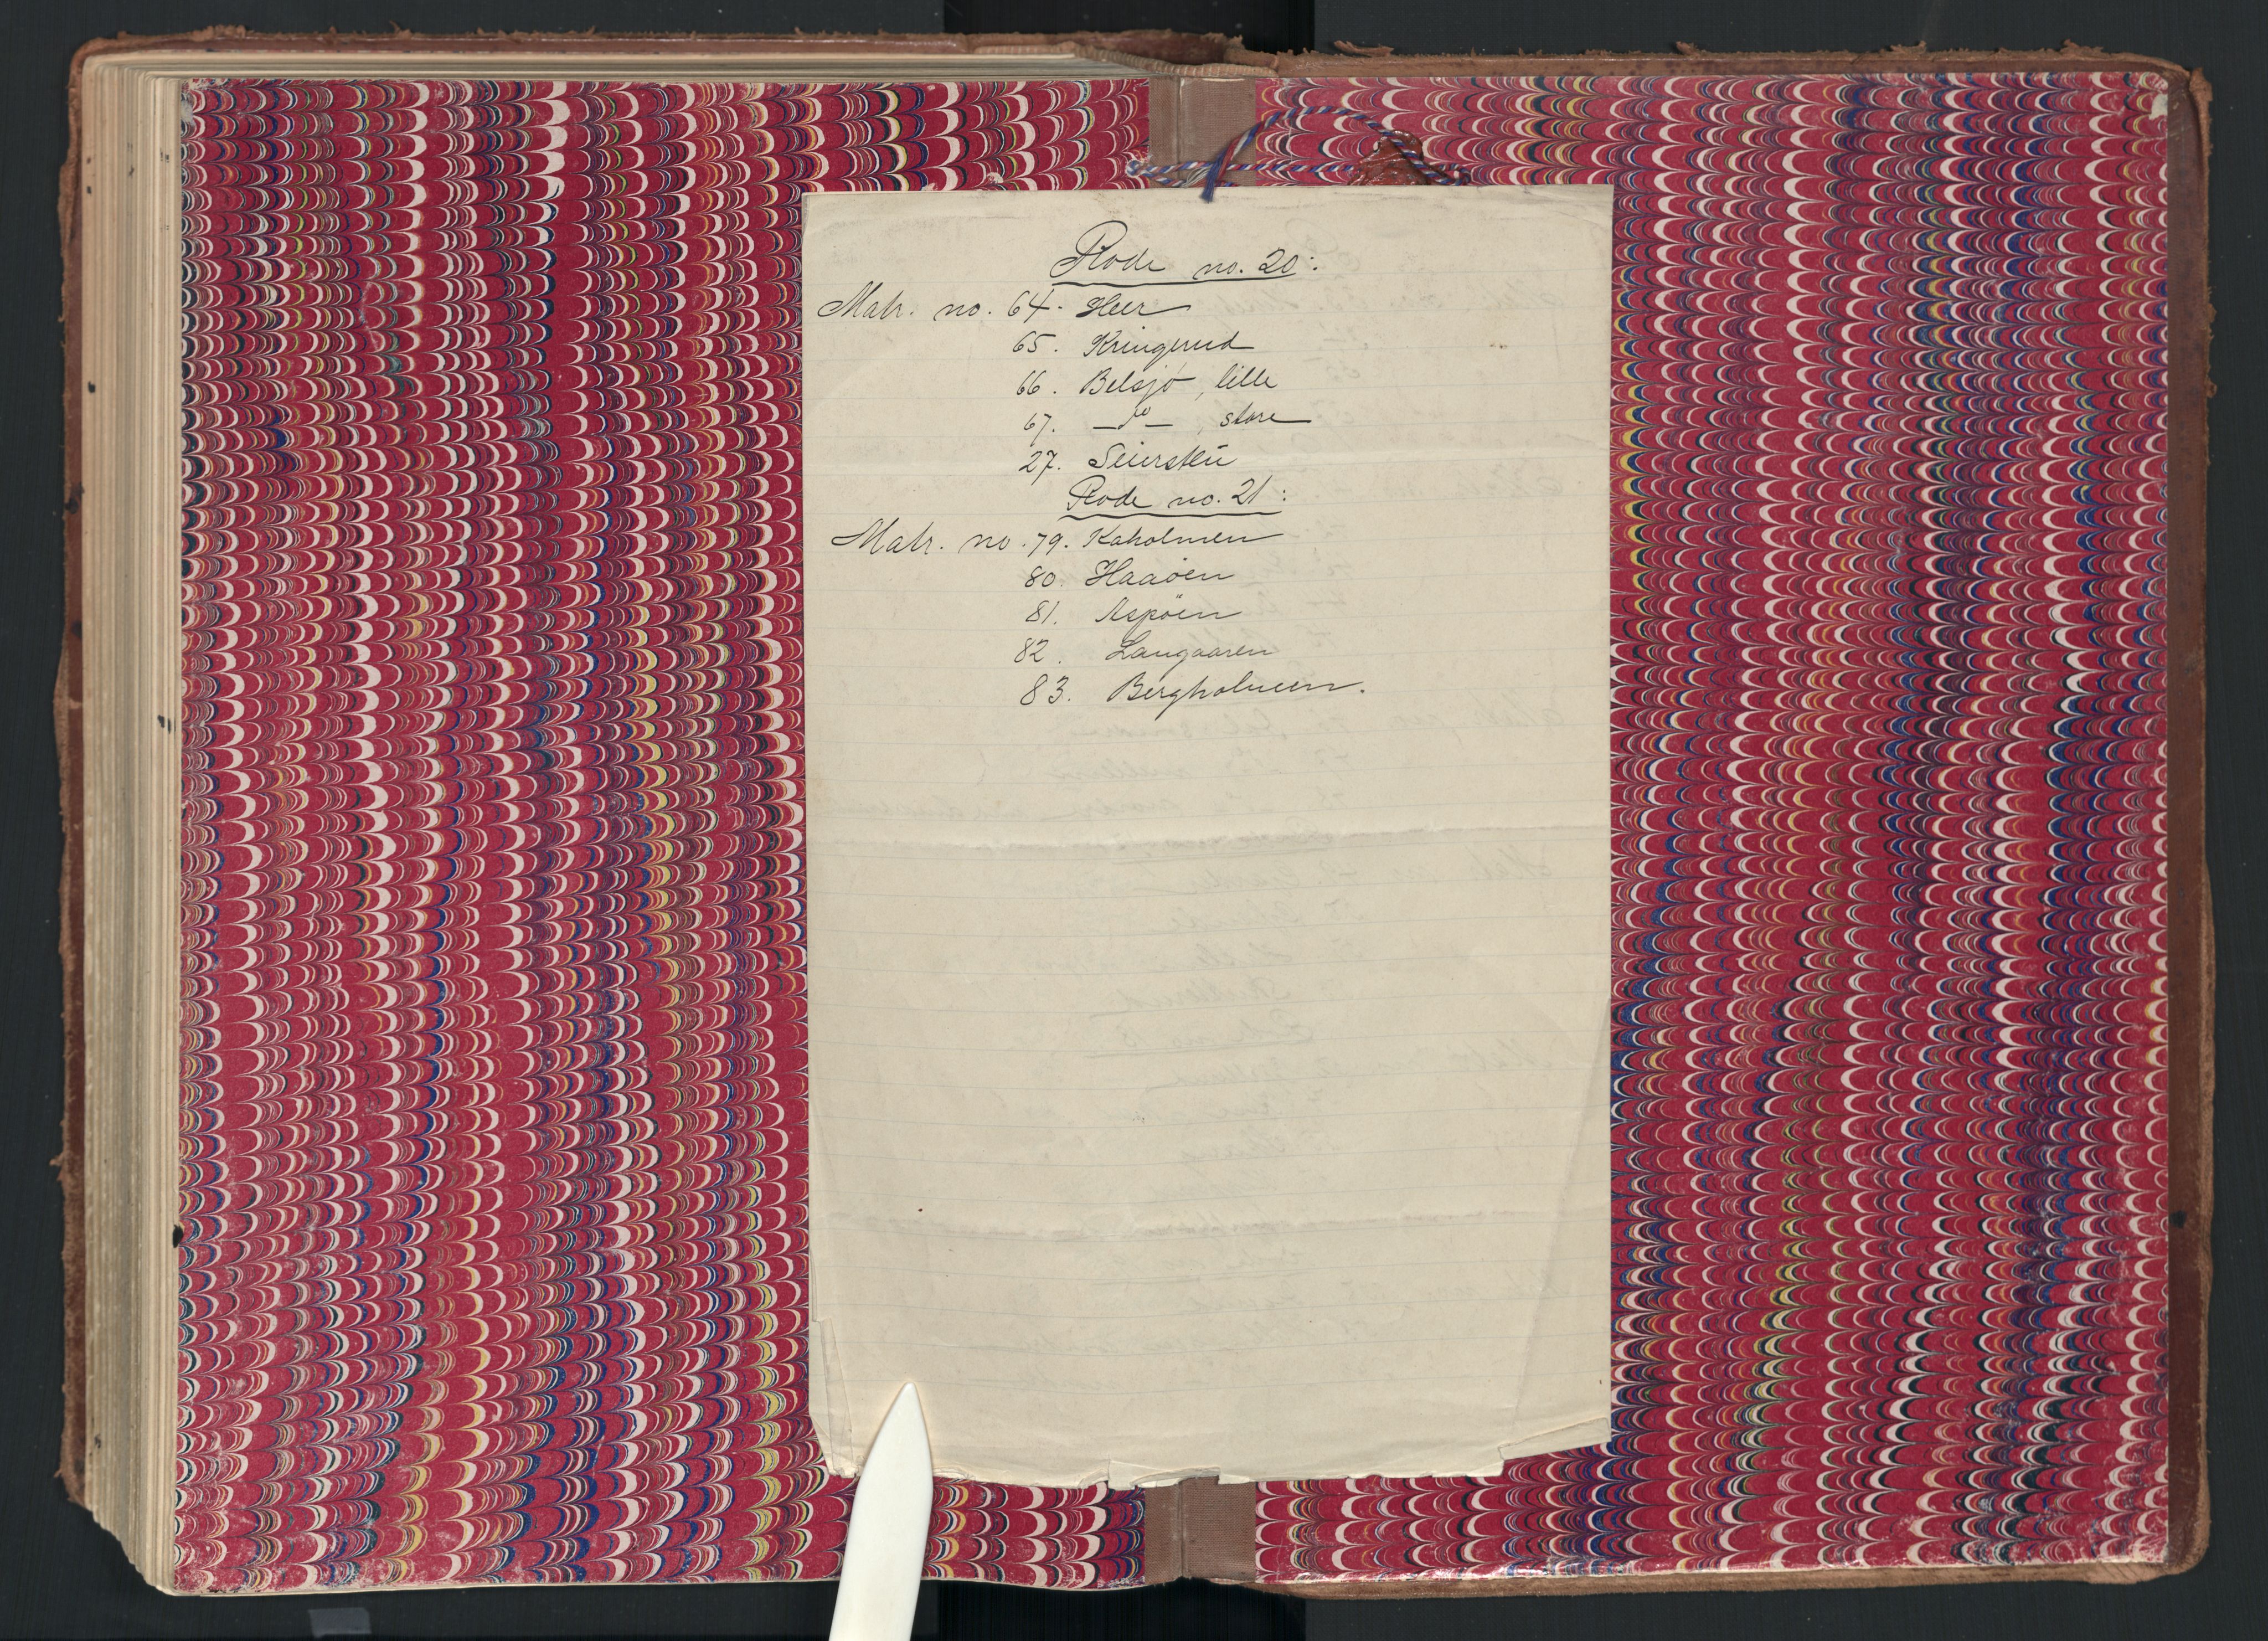 Rode no. 20:
Matr. no. 64. Heer
65. Kringerud
66. Belsjø, lille
67. —do— , store
27. Seiersten
Rode no. 21:
Matr. no. 79. Kaholmen
80. Haaøen
81. Aspöen
82. Langaaren
83. Bergholmen.